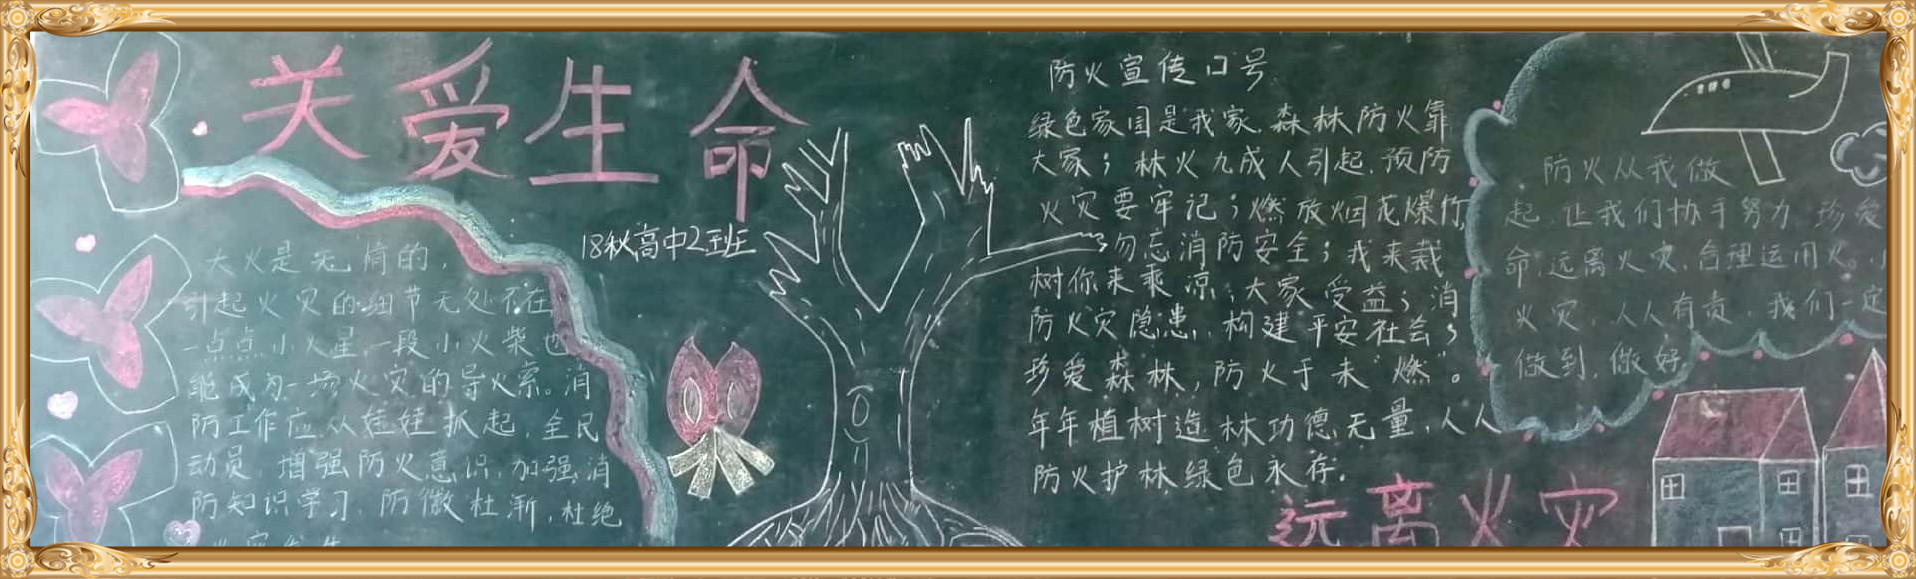 关爱生命
18秋高中2班
大火是无情的，
引起火灾的细节无处不在
一点点小火星，一段小火柴也
能成为一场火灾的导火索。消
防工作应从娃娃抓起，全民
动员，增强防火意识，加强消
防知识学习，防微杜渐，杜绝
防火宣传口号
绿色家园是我家，森林防火靠
大家；林火九成人引起，预防
火灾要牢记；燃放烟花爆竹，
勿忘消防安全；我来栽
树你来乘凉；大家受益；消
防火灾隐患，构建平安社会；
珍爱森林，防火于未“燃”。
年年植树造林功德无量，人人
防火护林绿色永存。
防火从我做
起，让我们协手努力，珍爱
命，远离火灾，合理运用火。
火灾，人人有责，我们一定
做到，做好
远离火灾